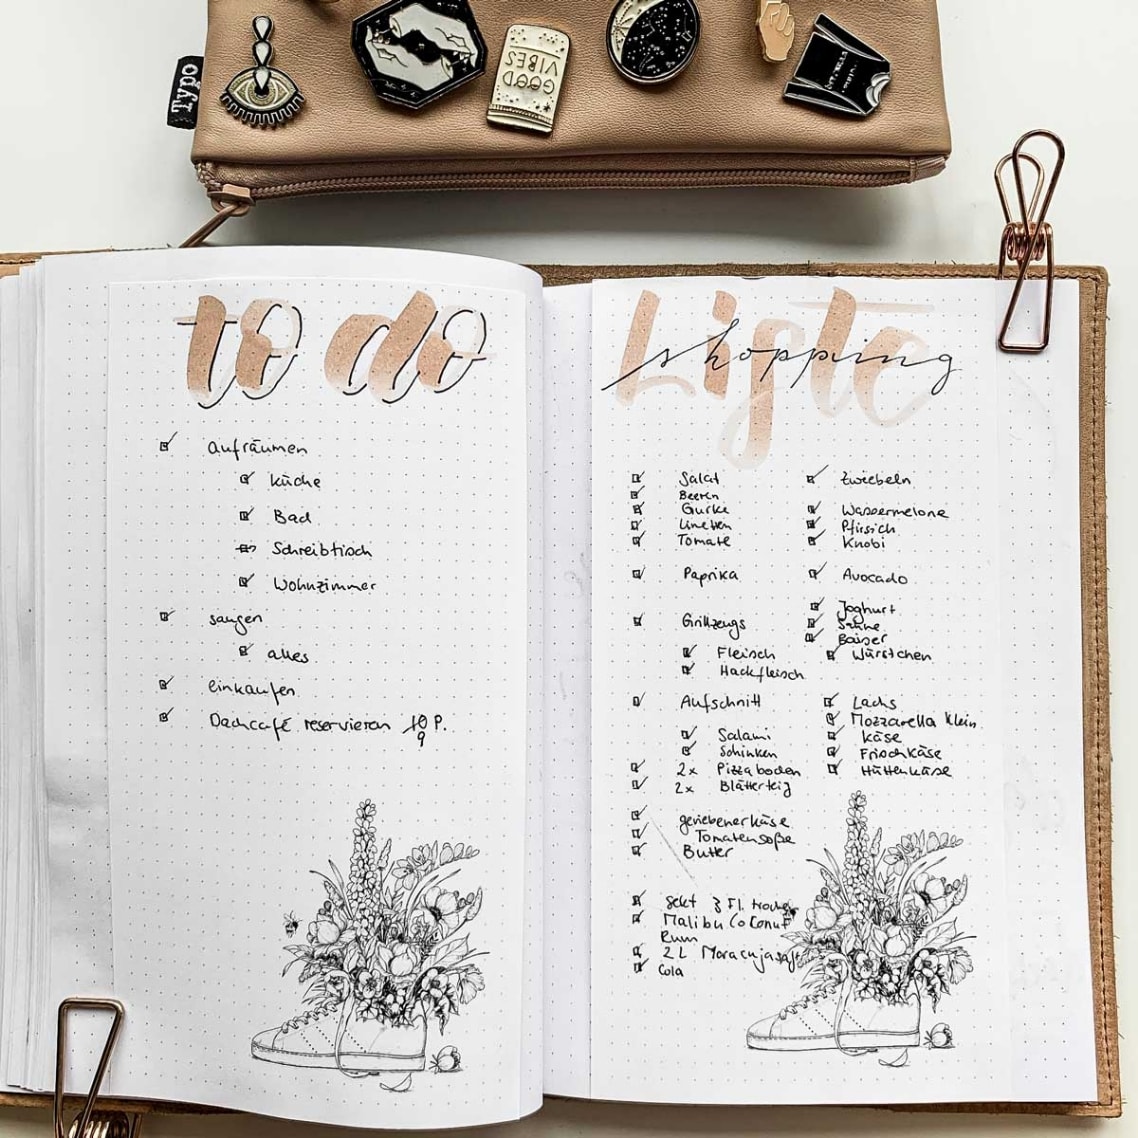 Typo
GOOD
VIBES
to do
aufräumen
Küche
Bad
Schreibtisch
Wohnzimmer
saugen
alles
einkaufen
Dachcafé reservieren 10 P.
9
Liste
shopping
Salat
Beeren
Gurke
Limetten
Tomate
Paprika
Grillzeugs
Fleisch
Hackfleisch
Aufschnitt
Salami
Schinken
2x Pizzaboden
2x Blätterteig
geriebener Käse
Tomatensoße
Butter
Sekt 3 Fl. trocken
Malibu Coconut
Rum
2 L Maracujasaft
Cola
Zwiebeln
Wassermelone
Pfirsich
Knobi
Avocado
Joghurt
Sahne
Baiser
Würstchen
Lachs
Mozzarella klein
Käse
Frischkäse
Hüttenkäse